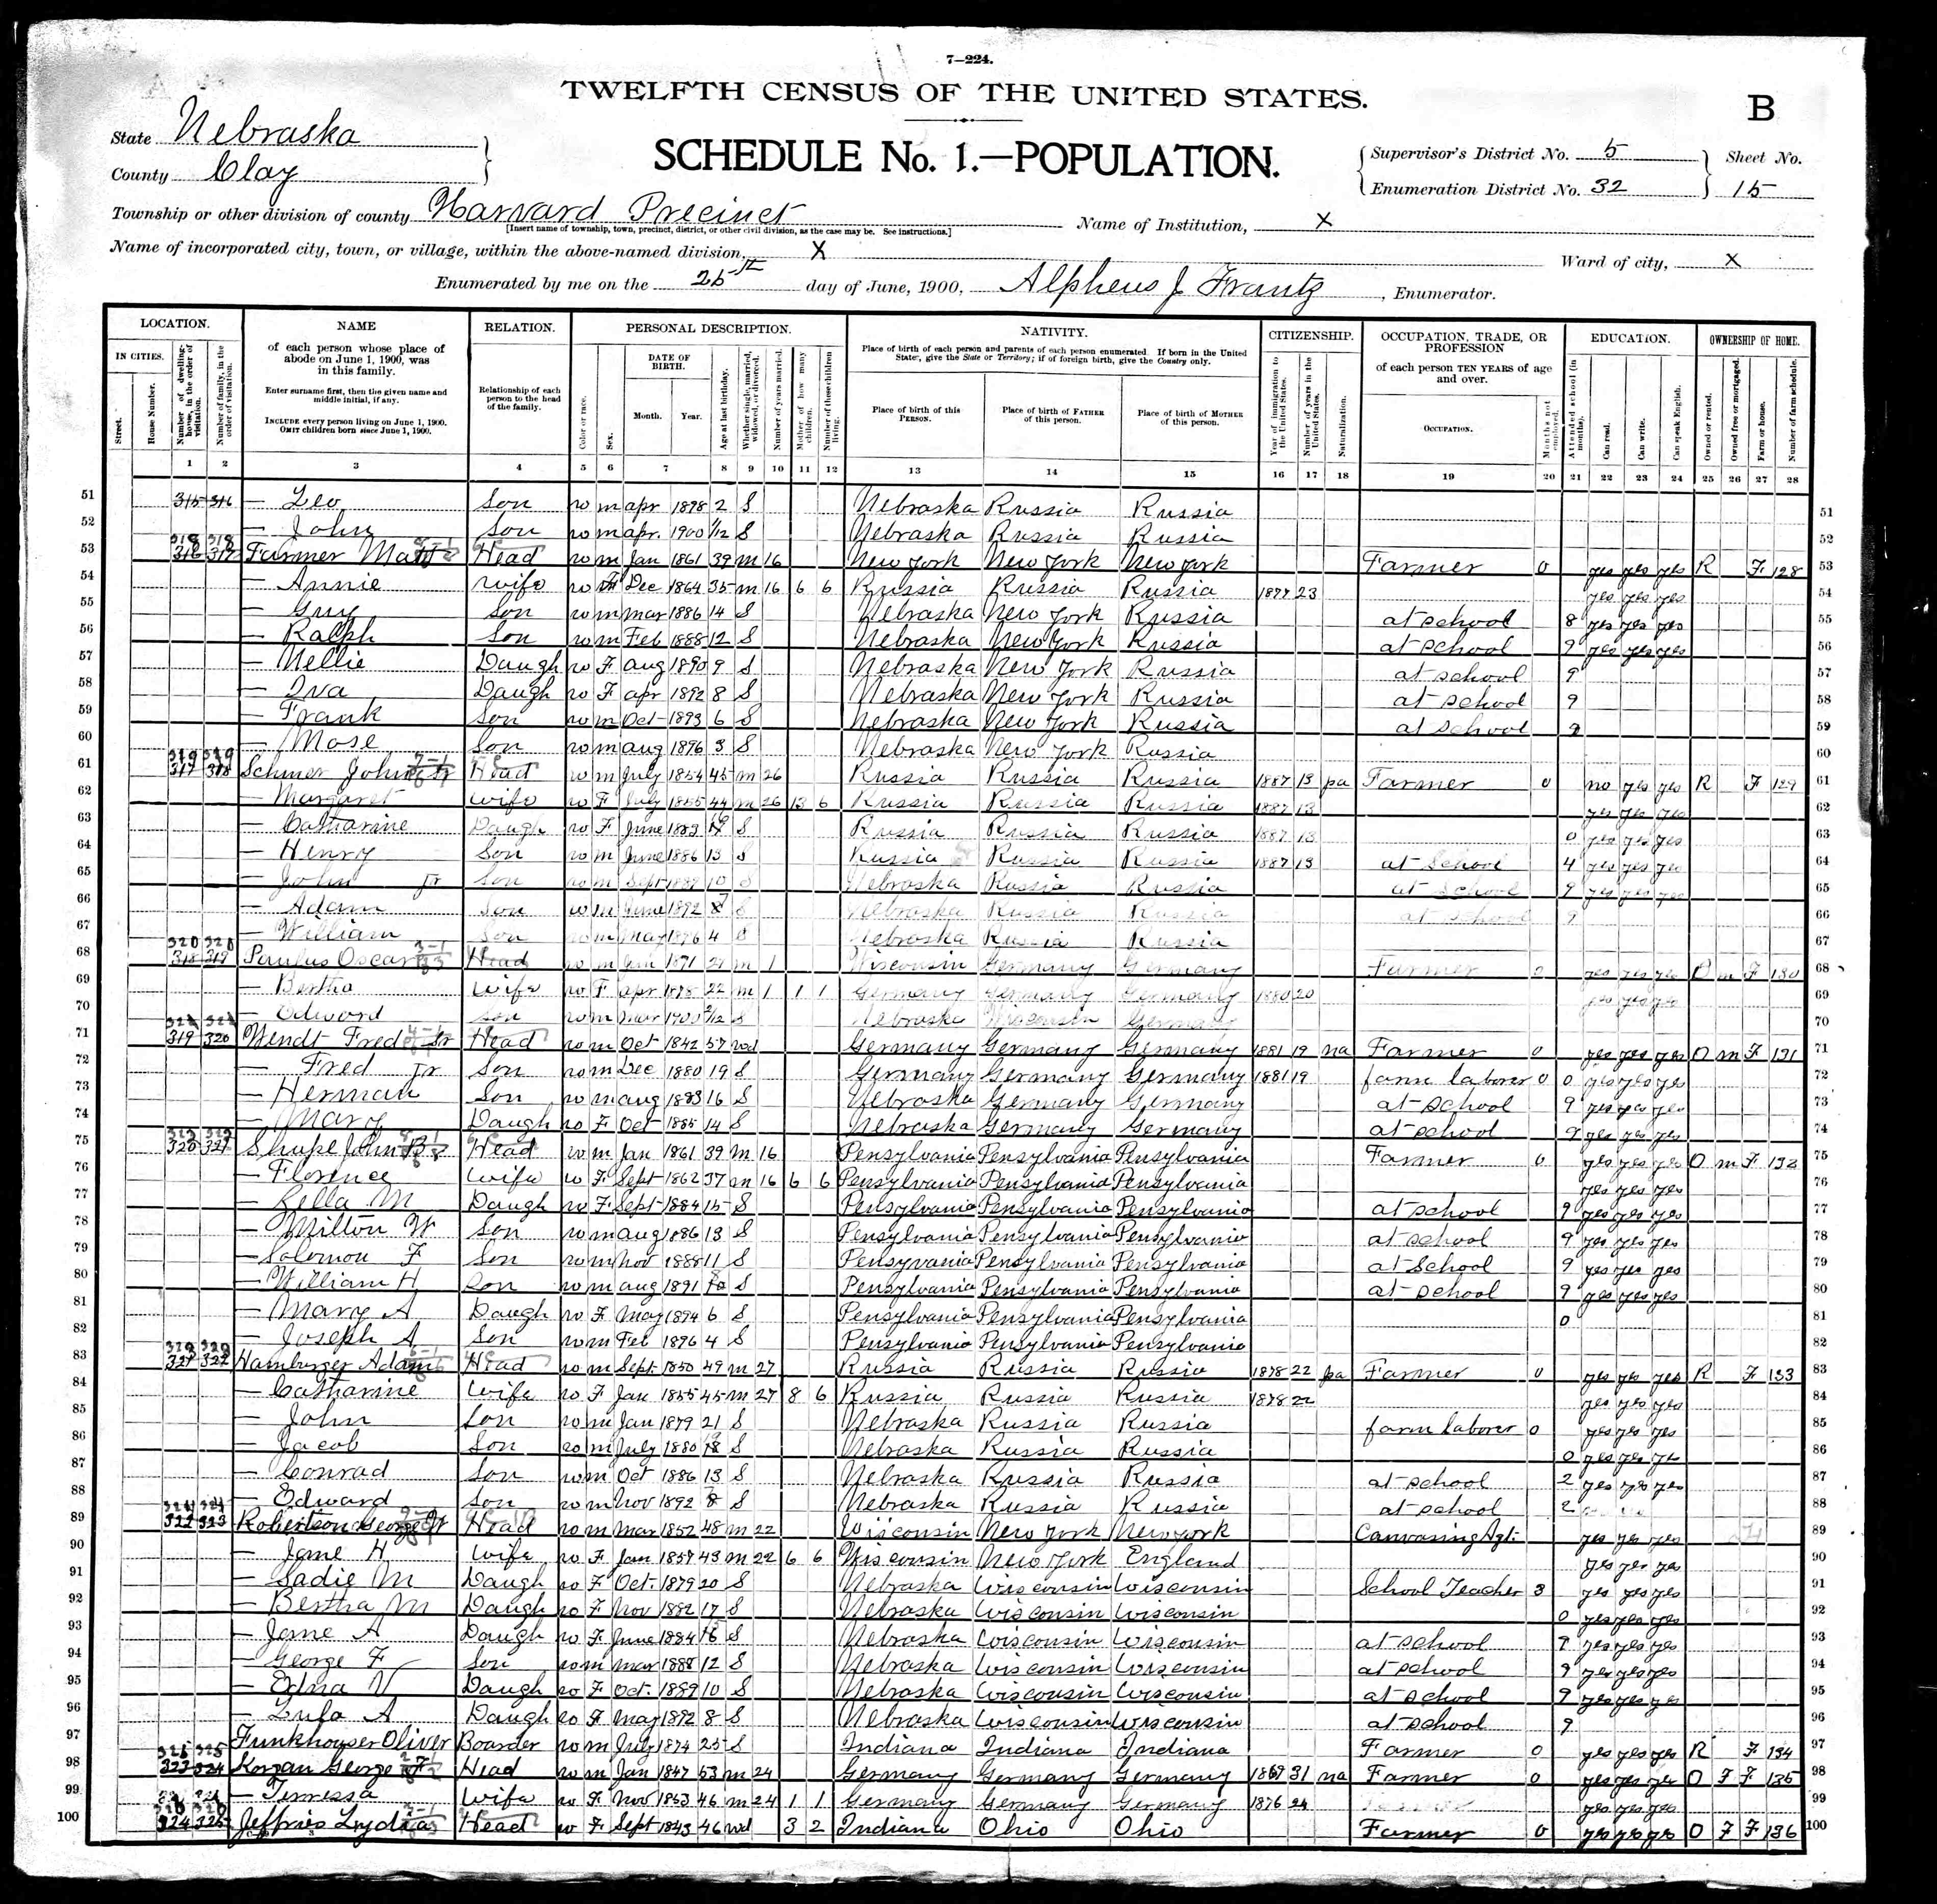 7—224.
TWELFTH CENSUS OF THE UNITED STATES.
B
State Nebraska
County Clay
SCHEDULE No. 1.—POPULATION.
Supervisor's District No. 5
Enumeration District No. 32
Sheet No.
15
Township or other division of county Harvard Precinct
[Insert name of township, town, precinct, district, or other civil division, as the case may be. See instructions.]
Name of Institution, X
Name of incorporated city, town, or village, within the above-named division, X
Ward of city, X
Enumerated by me on the 25th day of June, 1900, Alpheus J Frantz, Enumerator.
LOCATION.
IN CITIES.
Street.
House Number.
Number of dwelling-house, in the order of visitation.
Number of family, in the order of visitation.
NAME
of each person whose place of abode on June 1, 1900, was in this family.
Enter surname first, then the given name and middle initial, if any.
INCLUDE every person living on June 1, 1900.
OMIT children born since June 1, 1900.
RELATION.
Relationship of each person to the head of the family.
PERSONAL DESCRIPTION.
Color or race.
Sex.
DATE OF BIRTH.
Month.
Year.
Age at last birthday.
Whether single, married, widowed, or divorced.
Number of years married.
Mother of how many children.
Number of these children living.
NATIVITY.
Place of birth of each person and parents of each person enumerated. If born in the United States, give the State or Territory; if of foreign birth, give the Country only.
Place of birth of this PERSON.
Place of birth of FATHER of this person.
Place of birth of MOTHER of this person.
CITIZENSHIP.
Year of immigration to the United States.
Number of years in the United States.
Naturalization.
OCCUPATION, TRADE, OR PROFESSION
of each person TEN YEARS of age and over.
OCCUPATION.
Months not employed.
EDUCATION.
Attended school (in months).
Can read.
Can write.
Can speak English.
OWNERSHIP OF HOME.
Owned or rented.
Owned free or mortgaged.
Farm or house.
Number of farm schedule.
1 2 3 4 5 6 7 8 9 10 11 12 13 14 15 16 17 18 19 20 21 22 23 24 25 26 27 28
51 315 316 — Leo Son w m apr 1898 2 S Nebraska Russia Russia 51
52 — John Son w m apr. 1900 1/12 S Nebraska Russia Russia 52
53 316 317 318 318 Farmer Matt Head w m Jan 1861 39 m 16 New York New York New York Farmer 0 yes yes yes R F 128 53
54 — Annie wife w F Dec 1864 35 m 16 6 6 Russia Russia Russia 1877 23 yes yes yes 54
55 — Guy Son w m mar 1886 14 S Nebraska New York Russia at school 8 yes yes yes 55
56 — Ralph Son w m Feb 1888 12 S Nebraska New York Russia at school 9 yes yes yes 56
57 — Nellie Daugh w F aug 1890 9 S Nebraska New York Russia at school 9 57
58 — Iva Daugh w F apr 1892 8 S Nebraska New York Russia at school 9 58
59 — Frank Son w m Oct 1893 6 S Nebraska New York Russia at school 9 59
60 — Mose Son w m aug 1896 3 S Nebraska New York Russia 60
61 317 318 319 319 Schmer John Sr Head w m July 1854 45 m 26 Russia Russia Russia 1887 13 pa Farmer 0 no yes yes R F 129 61
62 — Margaret wife w F July 1855 44 m 26 13 6 Russia Russia Russia 1887 13 yes yes yes 62
63 — Catharine Daugh w F June 1883 S Russia Russia Russia 1887 13 0 yes yes yes 63
64 — Henry Son w m June 1886 13 S Russia Russia Russia 1887 13 at School 4 yes yes yes 64
65 — John Jr Son w m Sept 1889 10 S Nebraska Russia Russia at school 9 yes yes yes 65
66 — Adam Son w m June 1892 7 S Nebraska Russia Russia at school 9 66
67 — William Son w m May 1896 4 S Nebraska Russia Russia 67
68 318 319 320 320 Paulus Oscar Head w m Jan 1871 29 m 1 Wisconsin Germany Germany Farmer 0 yes yes yes O m F 130 68
69 — Bertha wife w F apr 1878 22 m 1 1 1 Germany Germany Germany 1880 20 yes yes yes 69
70 — Edward Son w m Mar 1900 2/12 S Nebraska Wisconsin Germany 70
71 319 320 321 321 Wendt Fred Sr Head w m Oct 1842 57 wd Germany Germany Germany 1881 19 na Farmer 0 yes yes yes O m F 131 71
72 — Fred Jr Son w m Dec 1880 19 S Germany Germany Germany 1881 19 farm laborer 0 0 yes yes yes 72
73 — Herman Son w m aug 1883 16 S Nebraska Germany Germany at school 9 yes yes yes 73
74 — Mary Daugh w F Oct 1885 14 S Nebraska Germany Germany at school 9 yes yes yes 74
75 320 321 Shupe John B Head w m Jan 1861 39 m 16 Pensylvania Pensylvania Pensylvania Farmer 0 yes yes yes O m F 132 75
76 — Florence wife w F Sept 1862 37 m 16 6 6 Pensylvania Pensylvania Pensylvania yes yes yes 76
77 — Zella M Daugh w F Sept 1884 15 S Pensylvania Pensylvania Pensylvania at school 9 yes yes yes 77
78 — Milton W Son w m aug 1886 13 S Pensylvania Pensylvania Pensylvania at school 9 yes yes yes 78
79 — Solomon F Son w m Nov 1888 11 S Pensyvania Pensylvania Pensylvania at School 9 yes yes yes 79
80 — William H Son w m aug 1891 8 S Pensylvania Pensylvania Pensylvania at school 9 yes yes yes 80
81 — Mary A Daugh w F May 1894 6 S Pensylvania Pensylvania Pensylvania 0 81
82 — Joseph A Son w m Feb 1896 4 S Pensylvania Pensylvania Pensylvania 82
83 321 322 Hamburger Adam Head w m Sept. 1850 49 m 27 Russia Russia Russia 1878 22 pa Farmer 0 yes yes yes R F 133 83
84 — Catharine wife w F Jan 1855 45 m 27 8 6 Russia Russia Russia 1878 22 yes yes yes 84
85 — John Son w m Jan 1879 21 S Nebraska Russia Russia farm laborer 0 yes yes yes 85
86 — Jacob Son w m July 1880 S Nebraska Russia Russia 0 yes yes yes 86
87 — Conrad Son w m Oct 1886 13 S Nebraska Russia Russia at school 2 yes yes yes 87
88 — Edward Son w m Nov 1892 S Nebraska Russia Russia at school 2 88
89 322 323 324 324 Robertson George W Head w m Mar 1852 48 m 22 Wisconsin New York New York Canvassing Agt. yes yes yes 89
90 — Jane H wife w F Jan 1857 43 m 22 6 6 Wisconsin New York England yes yes yes 90
91 — Sadie M Daugh w F Oct. 1879 20 S Nebraska Wisconsin Wisconsin School Teacher 3 yes yes yes 91
92 — Bertha M Daugh w F Nov 1882 17 S Nebraska Wisconsin Wisconsin 0 yes yes yes 92
93 — Jane A Daugh w F June 1884 S Nebraska Wisconsin Wisconsin at school 9 yes yes yes 93
94 — George F Son w m mar 1888 12 S Nebraska Wisconsin Wisconsin at school 9 yes yes yes 94
95 — Edna V Daugh w F Oct. 1889 10 S Nebraska Wisconsin Wisconsin at school 9 yes yes yes 95
96 — Lula A Daugh w F May 1892 8 S Nebraska Wisconsin Wisconsin at school 9 96
97 Funkhouser Oliver Boarder w m July 1874 25 S Indiana Indiana Indiana Farmer 0 yes yes yes R F 134 97
98 323 324 325 325 Korgan George F Head w m Jan 1847 53 m 24 Germany Germany Germany 1869 31 na Farmer 0 yes yes yes O F F 135 98
99 — Teressa wife w F Nov 1853 46 m 24 1 1 Germany Germany Germany 1876 24 yes yes yes 99
100 324 325 Jeffries Lydia Head w F Sept 1843 46 wd 3 2 Indiana Ohio Ohio Farmer 0 yes yes yes O F F 136 100